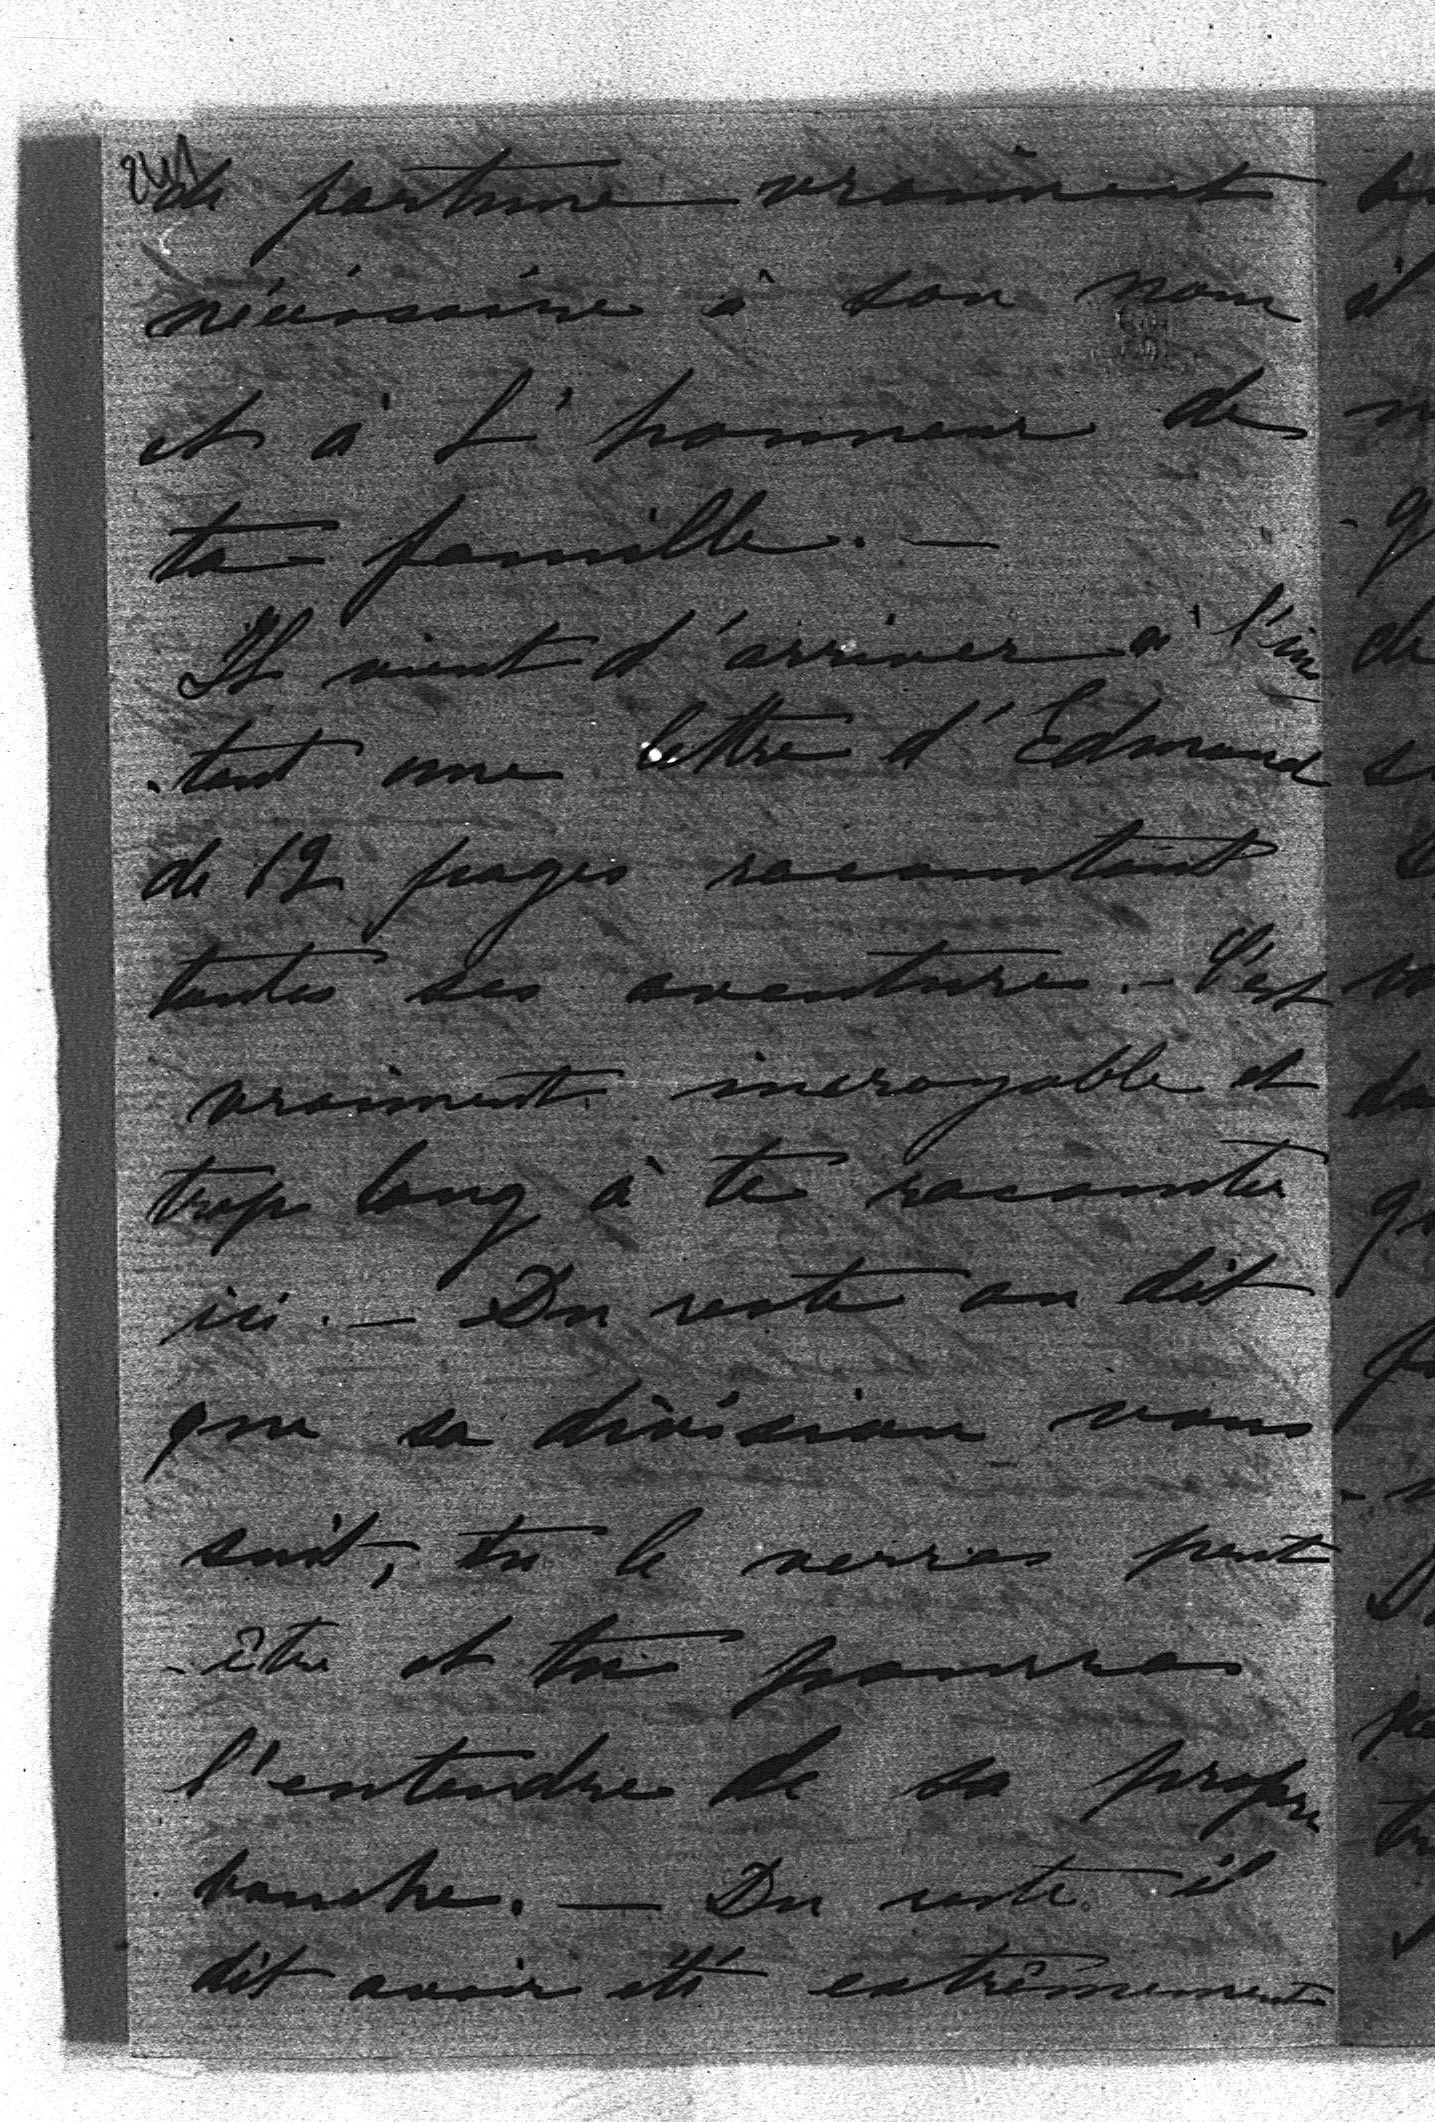 de fortune vraiment
nécessaire à son nom
et à l'honneur de
ta famille. —
Il vient d'arriver à l'ins
-tant une lettre d'Edmond
de 12 pages racontant
toutes ses aventures. - C'est
vraiment incroyable et
trop long à te raconter
ici. — Du reste on dit
que sa division vous
suit, tu le verras peut
-être et tu pourras
l'entendre de sa propre
bouche. — Du reste il
dit avoir été extrêmement